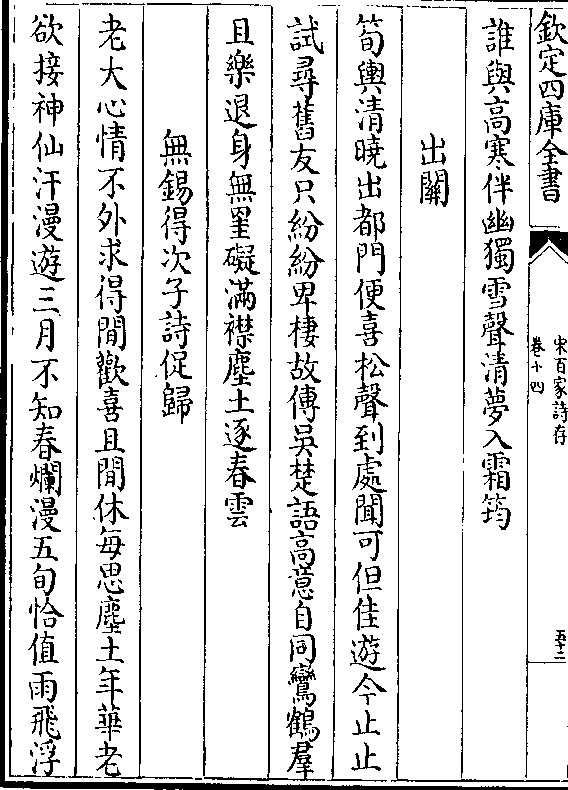 欽定四庫全書
宋百家詩存
卷十四
五十二
誰與高寒伴幽獨雪聲清夢入霜筠
出關
筍輿清曉出都門便喜松聲到處聞可但佳遊今止止
試尋舊友只紛紛卑棲故傳吳楚語高意自同鸞鶴羣
且樂退身無罣礙滿襟塵土逐春雲
無錫得次子詩促歸
老大心情不外求得閒歡喜且閒休每思塵土年華老
欲接神仙汗漫遊三月不知春爛漫五旬恰值雨飛浮